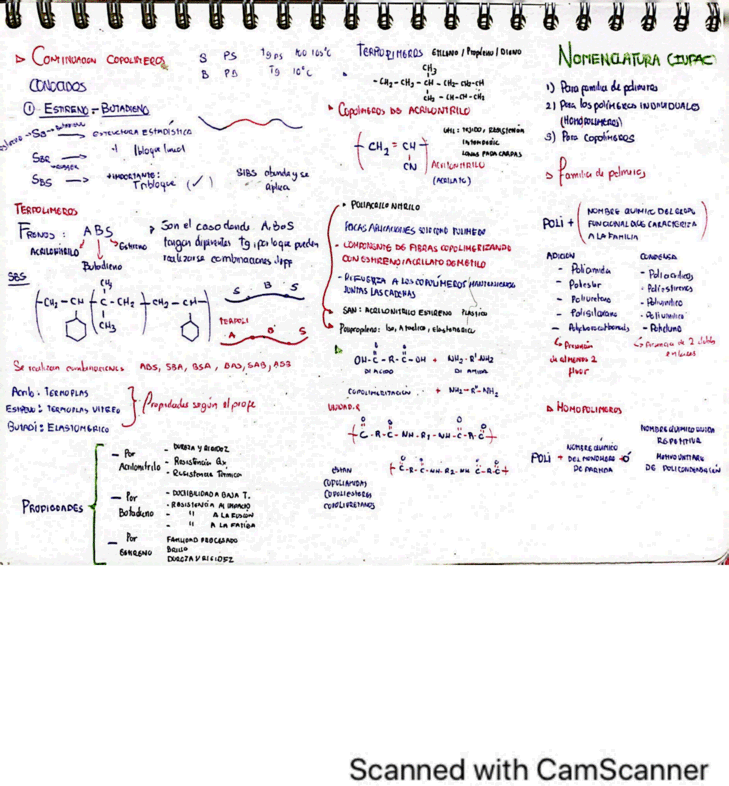 ▷ CONTINUACION COPOLIMEROS
CONOCIDOS
S PS Tg PS 100 105°C
B PB Tg 10°C
① ESTIRENO - BUTADIENO
SB → ESTRUCTURA ESTADISTICA
SBR → 1 bloque lineal
SBS → +IMPORTANTE:
Tribloque (✓)
SIBS abunda y se
aplica
TERPOLIMEROS
FAMOSOS : ABS
ACRILONITRILO
Butadieno
Estireno
Son el caso donde A, B o S
tengan diferentes Tg, por lo que pueden
realizarse combinaciones
SBS
(CH2 - CH)(C - CH2)(CH2 - CH)
CH3
CH3
S B S
TERPOLI
A B S
Se realizan combinaciones ABS, SBA, BSA, BAS, SAB, ASB
Acrib : TERMOPLAS
ESTIRENO : TERMOPLAS VITREO
BUTADI : ELASTOMERICO
Propiedades según el profe
PROPIEDADES
— Por
Acrilonitrilo
- DUREZA Y RIGIDEZ
- Resistencia Qx
- Resistencia Térmica
— Por
Butadieno
- DUCTIBILIDAD A BAJA T.
- RESISTENCIA AL IMPACTO
- " A LA FUSION
- " A LA FATIGA
— Por
ESTIRENO
FACILIDAD PROCESADO
BRILLO
DUREZA Y RIGIDEZ
TERPOLIMEROS ETILENO / Propileno / DIENO
CH3
- CH2 - CH2 - CH - CH2 - CH2 - CH
CH2 - CH = CH - CH2
▷ COPOLIMEROS DE ACRILONITRILO
( CH2 = CH )
CN
ACRILONITRILO
(ACRILATO)
USO : TEJIDO, RESISTENCIA
INTEMPERIE
LONAS PARA CARPAS
• POLIACRILO NITRILO
POCAS APLICACIONES SOLO COMO POLIMERO
- COMPONENTE DE FIBRAS COPOLIMERIZANDO
CON ESTIRENO / ACRILATO DE METILO
- REFUERZA A LOS COPOLÍMEROS MANTENIENDO
JUNTAS LAS CADENAS
SAN : ACRILONITRILO ESTIRENO PLASTICO
Polipropileno : Iso, A tactico, elastomerico
O O
OH - C - R - C - OH + NH2 - R' - NH2
DI ACIDO DI AMIDA
COPOLIMERIZACION + NH2 - R" - NH2
UNIDAD.R
O O O O
( C - R - C - NH - R1 - NH - C - R - C )
O O O O
( C - R - C - NH - R2 - NH - C - R - C )
ESTAN
COPOLIAMIDAS
COPOLIESTERES
COPOLIURETANOS
NOMENCLATURA (IUPAC)
1) Para familia de polimeros
2) Para los polímeros INDIVIDUALES
(HOMOPOLIMEROS)
3) Para COPOLÍMEROS
▷ Familia de polimeros
POLI + ( NOMBRE QUIMICO DEL GRUPO
FUNCIONAL QUE CARACTERIZA
A LA FAMILIA )
ADICION
- Poliamida
- Poliester
- Poliuretano
- Polisilano
- Polybocarbonato
↳ Presencia
de al menos 2
CONDENSA
- Poliestireno
- Polivinilico
↳ Presencia de 2 dobles
enlaces
▷ HOMOPOLIMEROS
POLI + NOMBRE QUIMICO
DEL MONOMERO
DE PARTIDA
Ó
NOMBRE QUIMICO UNIDA
REPETITIVA
MOTIVO UNITARIO
DE POLICONDENSACIÓN
Scanned with CamScanner